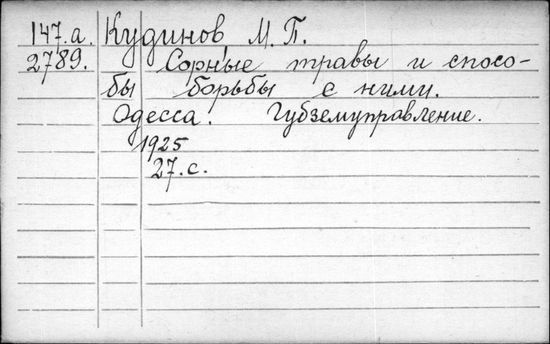 147.а. Кудинов М. П.
2789. Сорные травы и спосо-
бы борьбы с ними.
Одесса. Губземуправление.
1925
27. с.